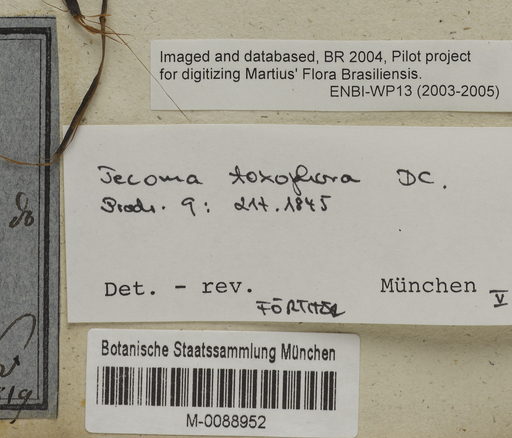 Imaged and databased, BR 2004, Pilot project
for digitizing Martius' Flora Brasiliensis.
ENBI-WP13 (2003-2005)
Tecoma toxophora DC.
Prodr. 9: 217.1845
Det. - rev.
München V
FÖRTHER
Botanische Staatssammlung München
M-0088952